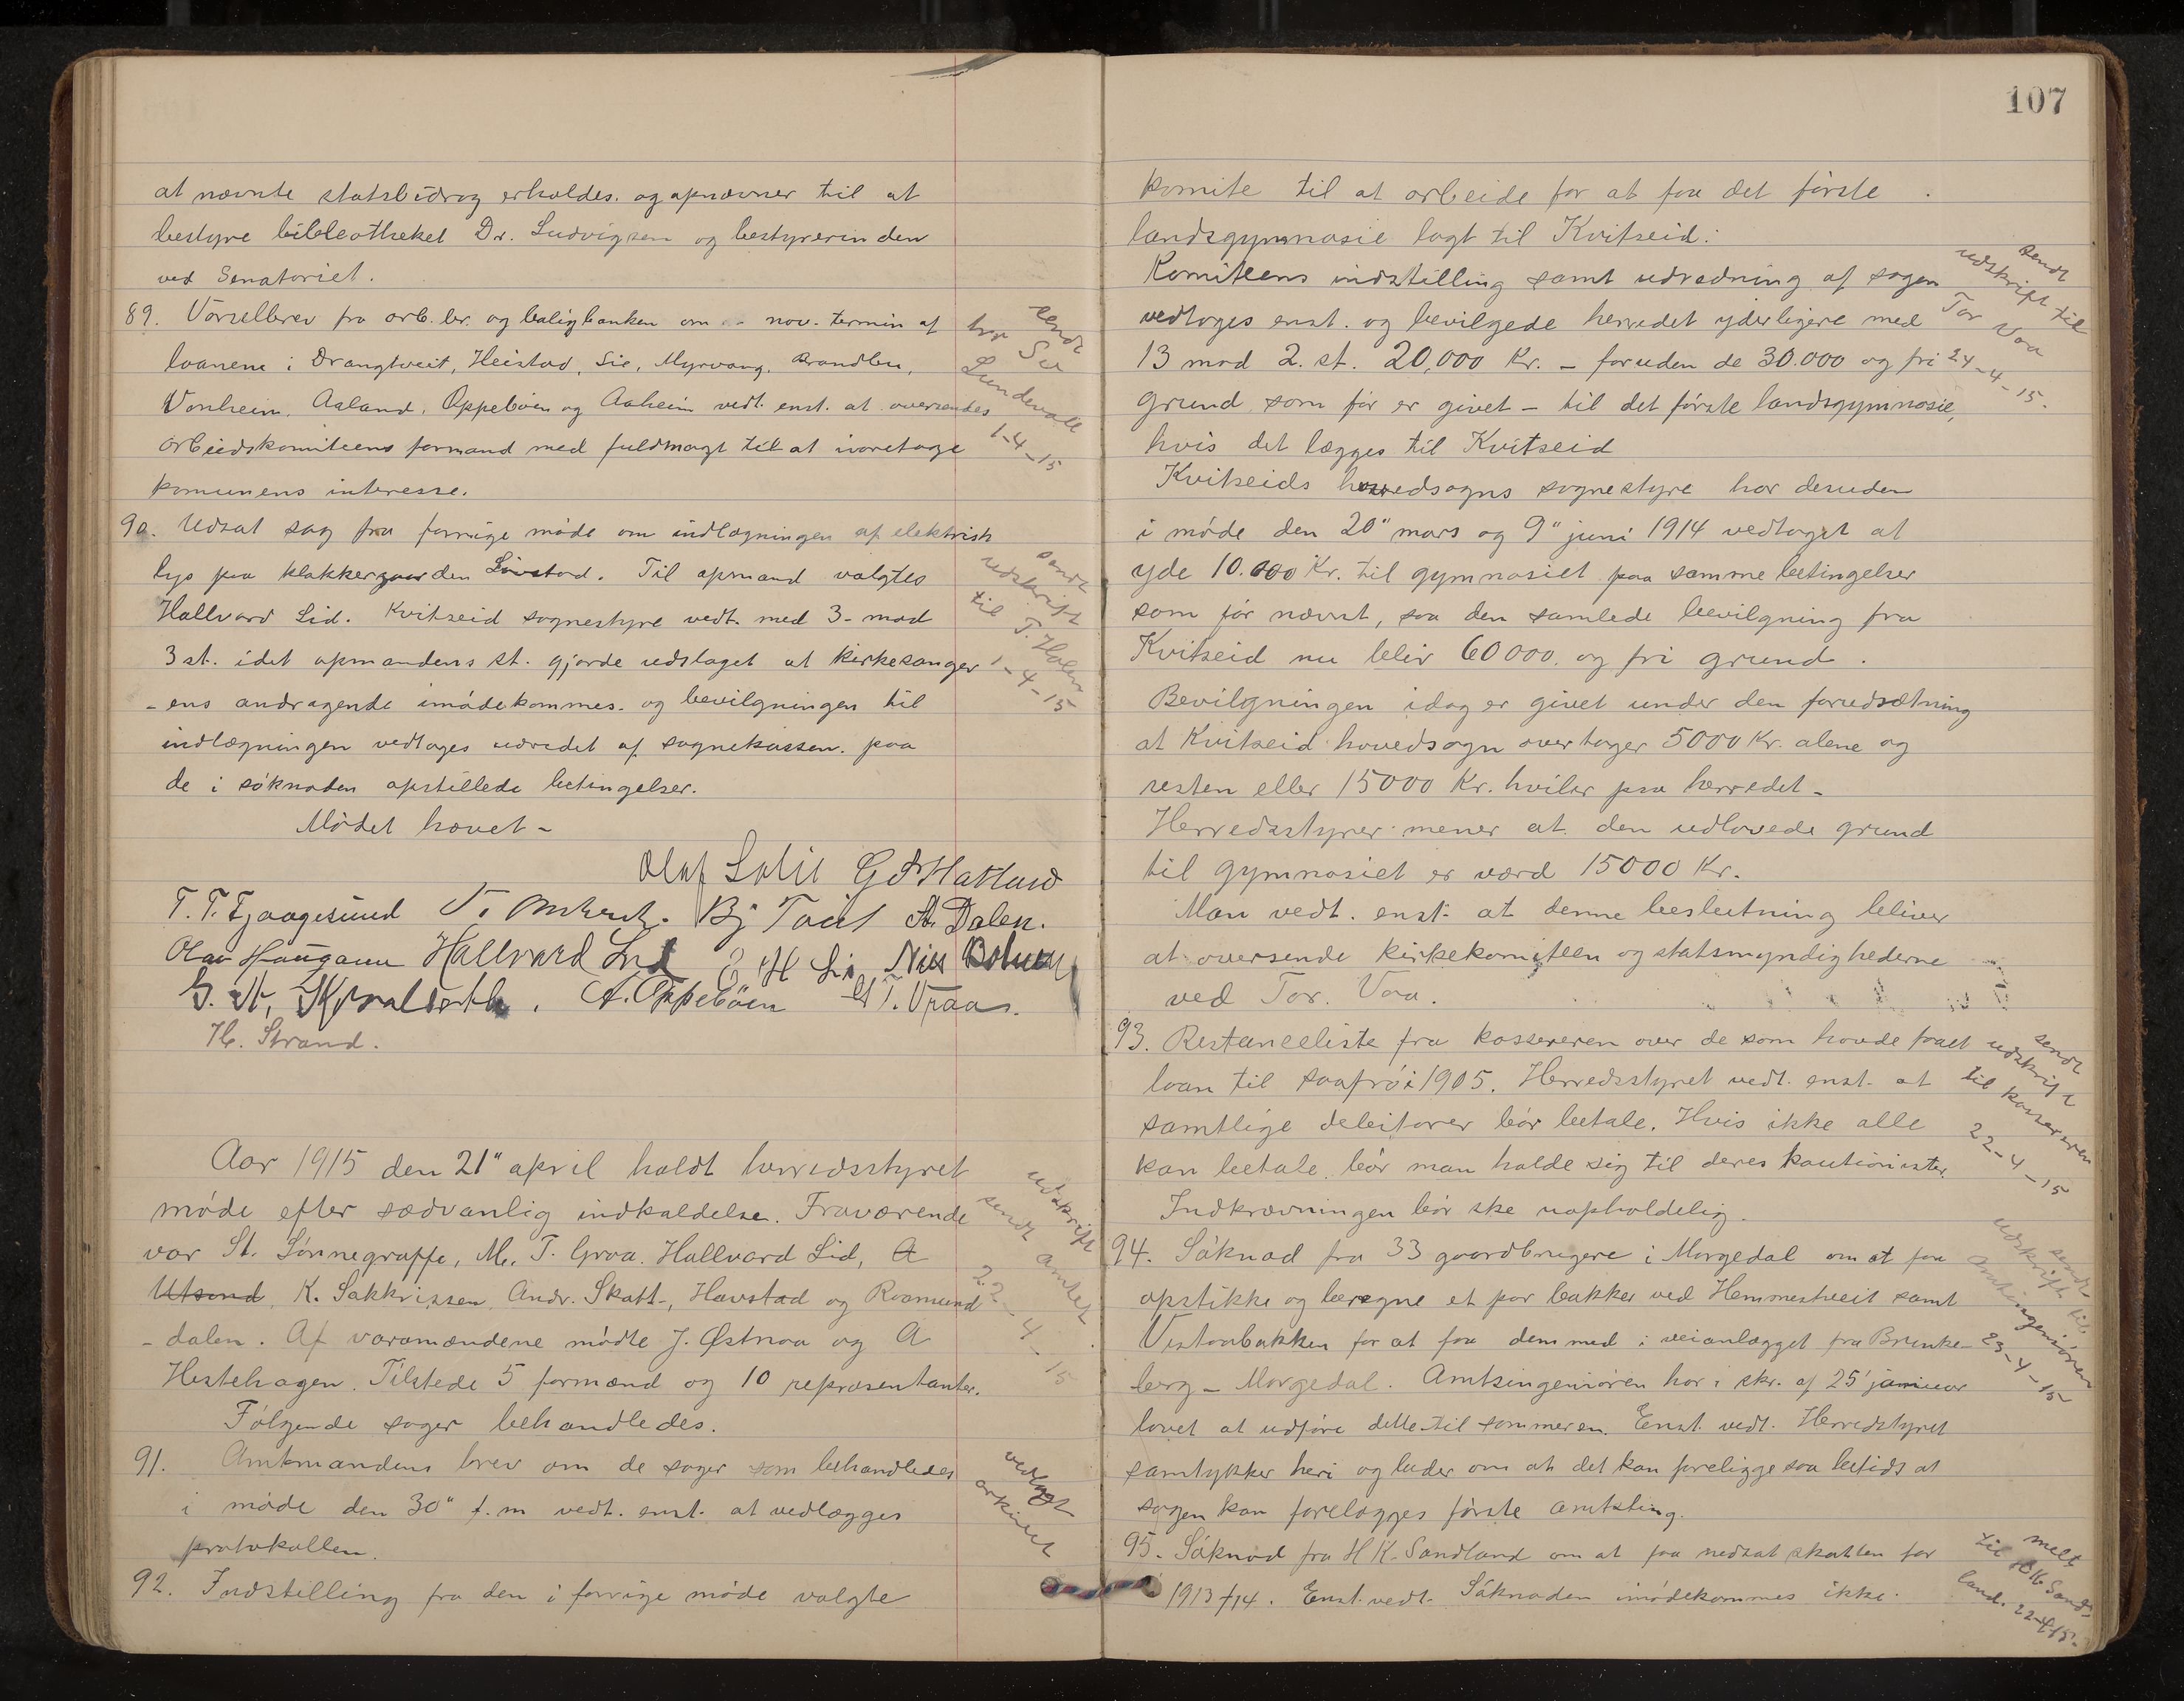 at nævnte statsbidrag erholdes. og opnævner til at
bestyre bibleotheket Dr. Ludvigsen og bestyrerinden
ved Senatoriet.
89. Varselbrev fra arb. br. og boligbanken om nov. termin af
laanene i Drangtveit, Heistad, Lie, Myrvang, Brandlien,
Vonheim, Aaland, Oppebøen og Aaheim vedt. enst. at oversendes
arbeidskomiteens formand med fuldmagt til at ivaretage
komunens interesse.
sendt
hr
Lundevall
1-4-15
90. Udsat sag fra forrige møde om indlægningen af elektrisk
lys paa klokkergaarden Løvstad. Til opmand valgtes
Hallvard Lid. Kvitseid sognestyre vedt. med 3 - mod
3 st. idet opmandens st. gjorde udslaget at kirkesanger
- ens andragende imødekommes. og bevilgningen til
indlægningen vedtoges udredet af sognekassen. paa
de i søknaden opstillede betingelser.
sendt
udskrift
til T. Holen
1-4-15
Mødet hævet -
Olaf Solli G. Hatland
T. T. Fjaagesund Bj Tait A. Dalen.
Olav Haugann Hallvard Lid E H Li Nils Bohus
G. A. A. Oppebøen G T. Vraa.
H. Strand.
Aar 1915 den 21" april holdt herredsstyret
møde efter sædvanlig indkaldelse. Fraværende
var St. Sønnegruppe, M. T. Groa. Hallvard Lid, A
Utsund, K. Sakkrissen, Andr. Skatt-, Havstad og Roamund
- dalen. Af varamændene mødte J. Østnaa og A
Hestehagen. Tilstede 5 formænd og 10 repræsentanter.
Følgende sager behandledes.
udskrift
sendt amtet
22-4-15
91. Amtmandens brev om de sager som behandledes
i møde den 30" f.m vedt. enst. at vedlægges
protokollen.
vedlagt
arkivet
92. Indstilling fra den i forrige møde valgte
107
komite til at arbeide for at faa det første
landsgymnasie lagt til Kvitseid.
Komiteens indstilling samt udredning af sagen
vedtoges enst. og bevilgede herredet yderligere med
13 mod 2. st. 20,000 Kr. - foruden de 30.000 og fri
grund som før er givet - til det første landsgymnasie,
hvis det lægges til Kvitseid
sendt
udskrift til
Tor Vaa
24-4-15.
Kvitseids hovedsogns sognestyre har desuden
i møde den 20" mars og 9" juni 1914 vedtaget at
yde 10.000 Kr. til gymnasiet paa samme betingelser
som før nævnt, saa den samlede bevilgning fra
Kvitseid nu blir 60000. og fri grund.
Bevilgningen idag er givet under den forudsætning
at Kvitseid hovedsogn overtager 5000 Kr. alene og
resten eller 15000 Kr. hviler paa herredet -
Herredsstyrer mener at den udlovede grund
til gymnasiet er værd 15000 Kr.
Man vedt. enst. at denne beslutning bliver
at oversende kirkekomiteen og statsmyndighederne
ved Tor. Vaa.
93. Restanceliste fra kassereren over de som havde faaet
laan til saafrø i 1905. Herredsstyret vedt. enst. at
samtlige debitorer bør betale. Hvis ikke alle
kan betale bør man holde sig til deres kautionister.
Indkrævningen bør ske uopholdelig.
sendt
udskrift
til kassereren
22-4-15
94. Søknad fra 33 gaardbrugere i Morgedal om at faa
opstikke og beregne et par bakker ved Hemmestveit samt
Vistaabakken for at faa dem med i veianlægget fra Brunke-
berg - Morgedal. Amtsingeniøren har i skr. af 25' januar
lovet at udføre dette til sommeren. Enst. vedt. Herredsstyret
samtykker heri og beder om at det kan foreligge saa betids at
sagen kan forelægges første amtsting.
sendt
udskrift til
Amtsingeniøren
23-4-15
95. Søknad fra H K. Sandland om at faa nedsat skatten for
1913/14. Enst. vedt. Søknaden imødekommes ikke.
melt
til H K. Sand-
land. 22-4-15-